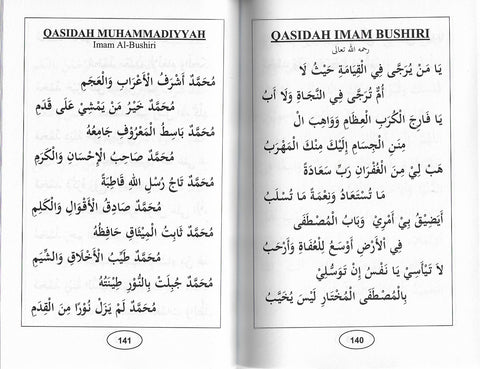 QASIDAH IMAM BUSHIRI
رحمه الله تعالى
يَا مَنْ يُرَجَّى فِي الْقِيَامَةِ حَيْثُ لَا
أُمٌّ تُرَجَّى فِي النَّجَاةِ وَلَا أَبُ
يَا فَارِجَ الْكُرَبِ الْعِظَامِ وَوَاهِبَ الْـ
مِنَنِ الْجِسَامِ إِلَيْكَ مِنْكَ الْمَهْرَبُ
هَبْ لِيْ مِنَ الْغُفْرَانِ رَبِّ سَعَادَةً
مَا تُسْتَعَادُ وَنِعْمَةً مَا تُسْلَبُ
أَيَضِيْقُ بِيْ أَمْرِيْ وَبَابُ الْمُصْطَفَى
فِي الْأَرْضِ أَوْسَعُ لِلْعُفَاةِ وَأَرْحَبُ
لَا تَيْأَسِيْ يَا نَفْسُ إِنْ تَوَسُّلِيْ
بِالْمُصْطَفَى الْمُخْتَارِ لَيْسَ يُخَيَّبُ
140
QASIDAH MUHAMMADIYYAH
Imam Al-Bushiri
مُحَمَّدٌ أَشْرَفُ الْأَعْرَابِ وَالْعَجَمِ
مُحَمَّدٌ خَيْرُ مَنْ يَمْشِيْ عَلَى قَدَمِ
مُحَمَّدٌ بَاسِطُ الْمَعْرُوْفِ جَامِعُهُ
مُحَمَّدٌ صَاحِبُ الْإِحْسَانِ وَالْكَرَمِ
مُحَمَّدٌ تَاجُ رُسْلِ اللهِ قَاطِبَةً
مُحَمَّدٌ صَادِقُ الْأَقْوَالِ وَالْكَلِمِ
مُحَمَّدٌ ثَابِتُ الْمِيْثَاقِ حَافِظُهُ
مُحَمَّدٌ طَيِّبُ الْأَخْلَاقِ وَالشِّيَمِ
مُحَمَّدٌ جُبِلَتْ بِالنُّوْرِ طِيْنَتُهُ
مُحَمَّدٌ لَمْ يَزَلْ نُوْرًا مِنَ الْقِدَمِ
141